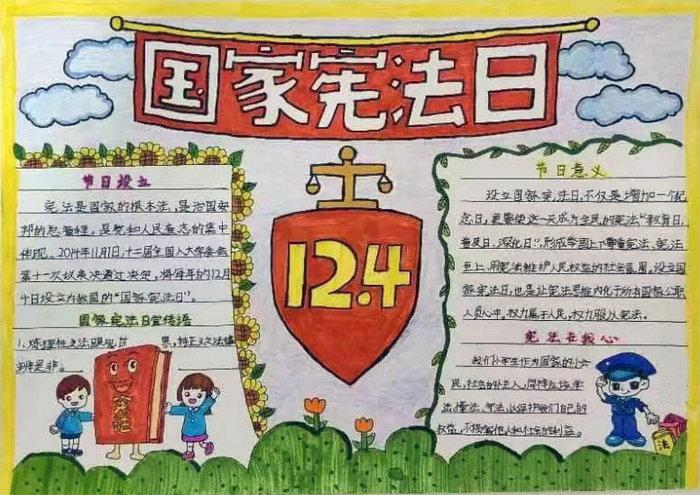 国家宪法日
节日设立
宪法是国家的根本法，是治国安
邦的总章程，是党和人民意志的集中
体现。2014年11月1日，十二届全国人大常委会
第十一次以表决通过决定，将每年的12月
4日设立为我国的“国家宪法日”。
国家宪法日宣传语
是非。
宪法
12.4
节日意义
设立国家宪法日，不仅是增加一个纪
念日，更要使这一天成为全民的宪法“教育日、
普及日、深化日”，形成举国上下尊重宪法、宪法
至上、用宪法维护人民权益的社会氛围。设立国
家宪法日，也是让宪法思维内化于所有国家公职
人员心中。权力属于人民，权力服从宪法。
宪法在我心
我们小学生作为国家的小公
民，社会的小主人，同样应该学
法、懂法、守法，以保护我们自己的
权益，不损害他人和社会的利益。
法